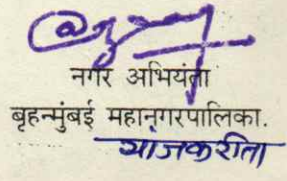 नगर अभियंता
बृहन्मुंबई महानगरपालिका.
यांजकरीता